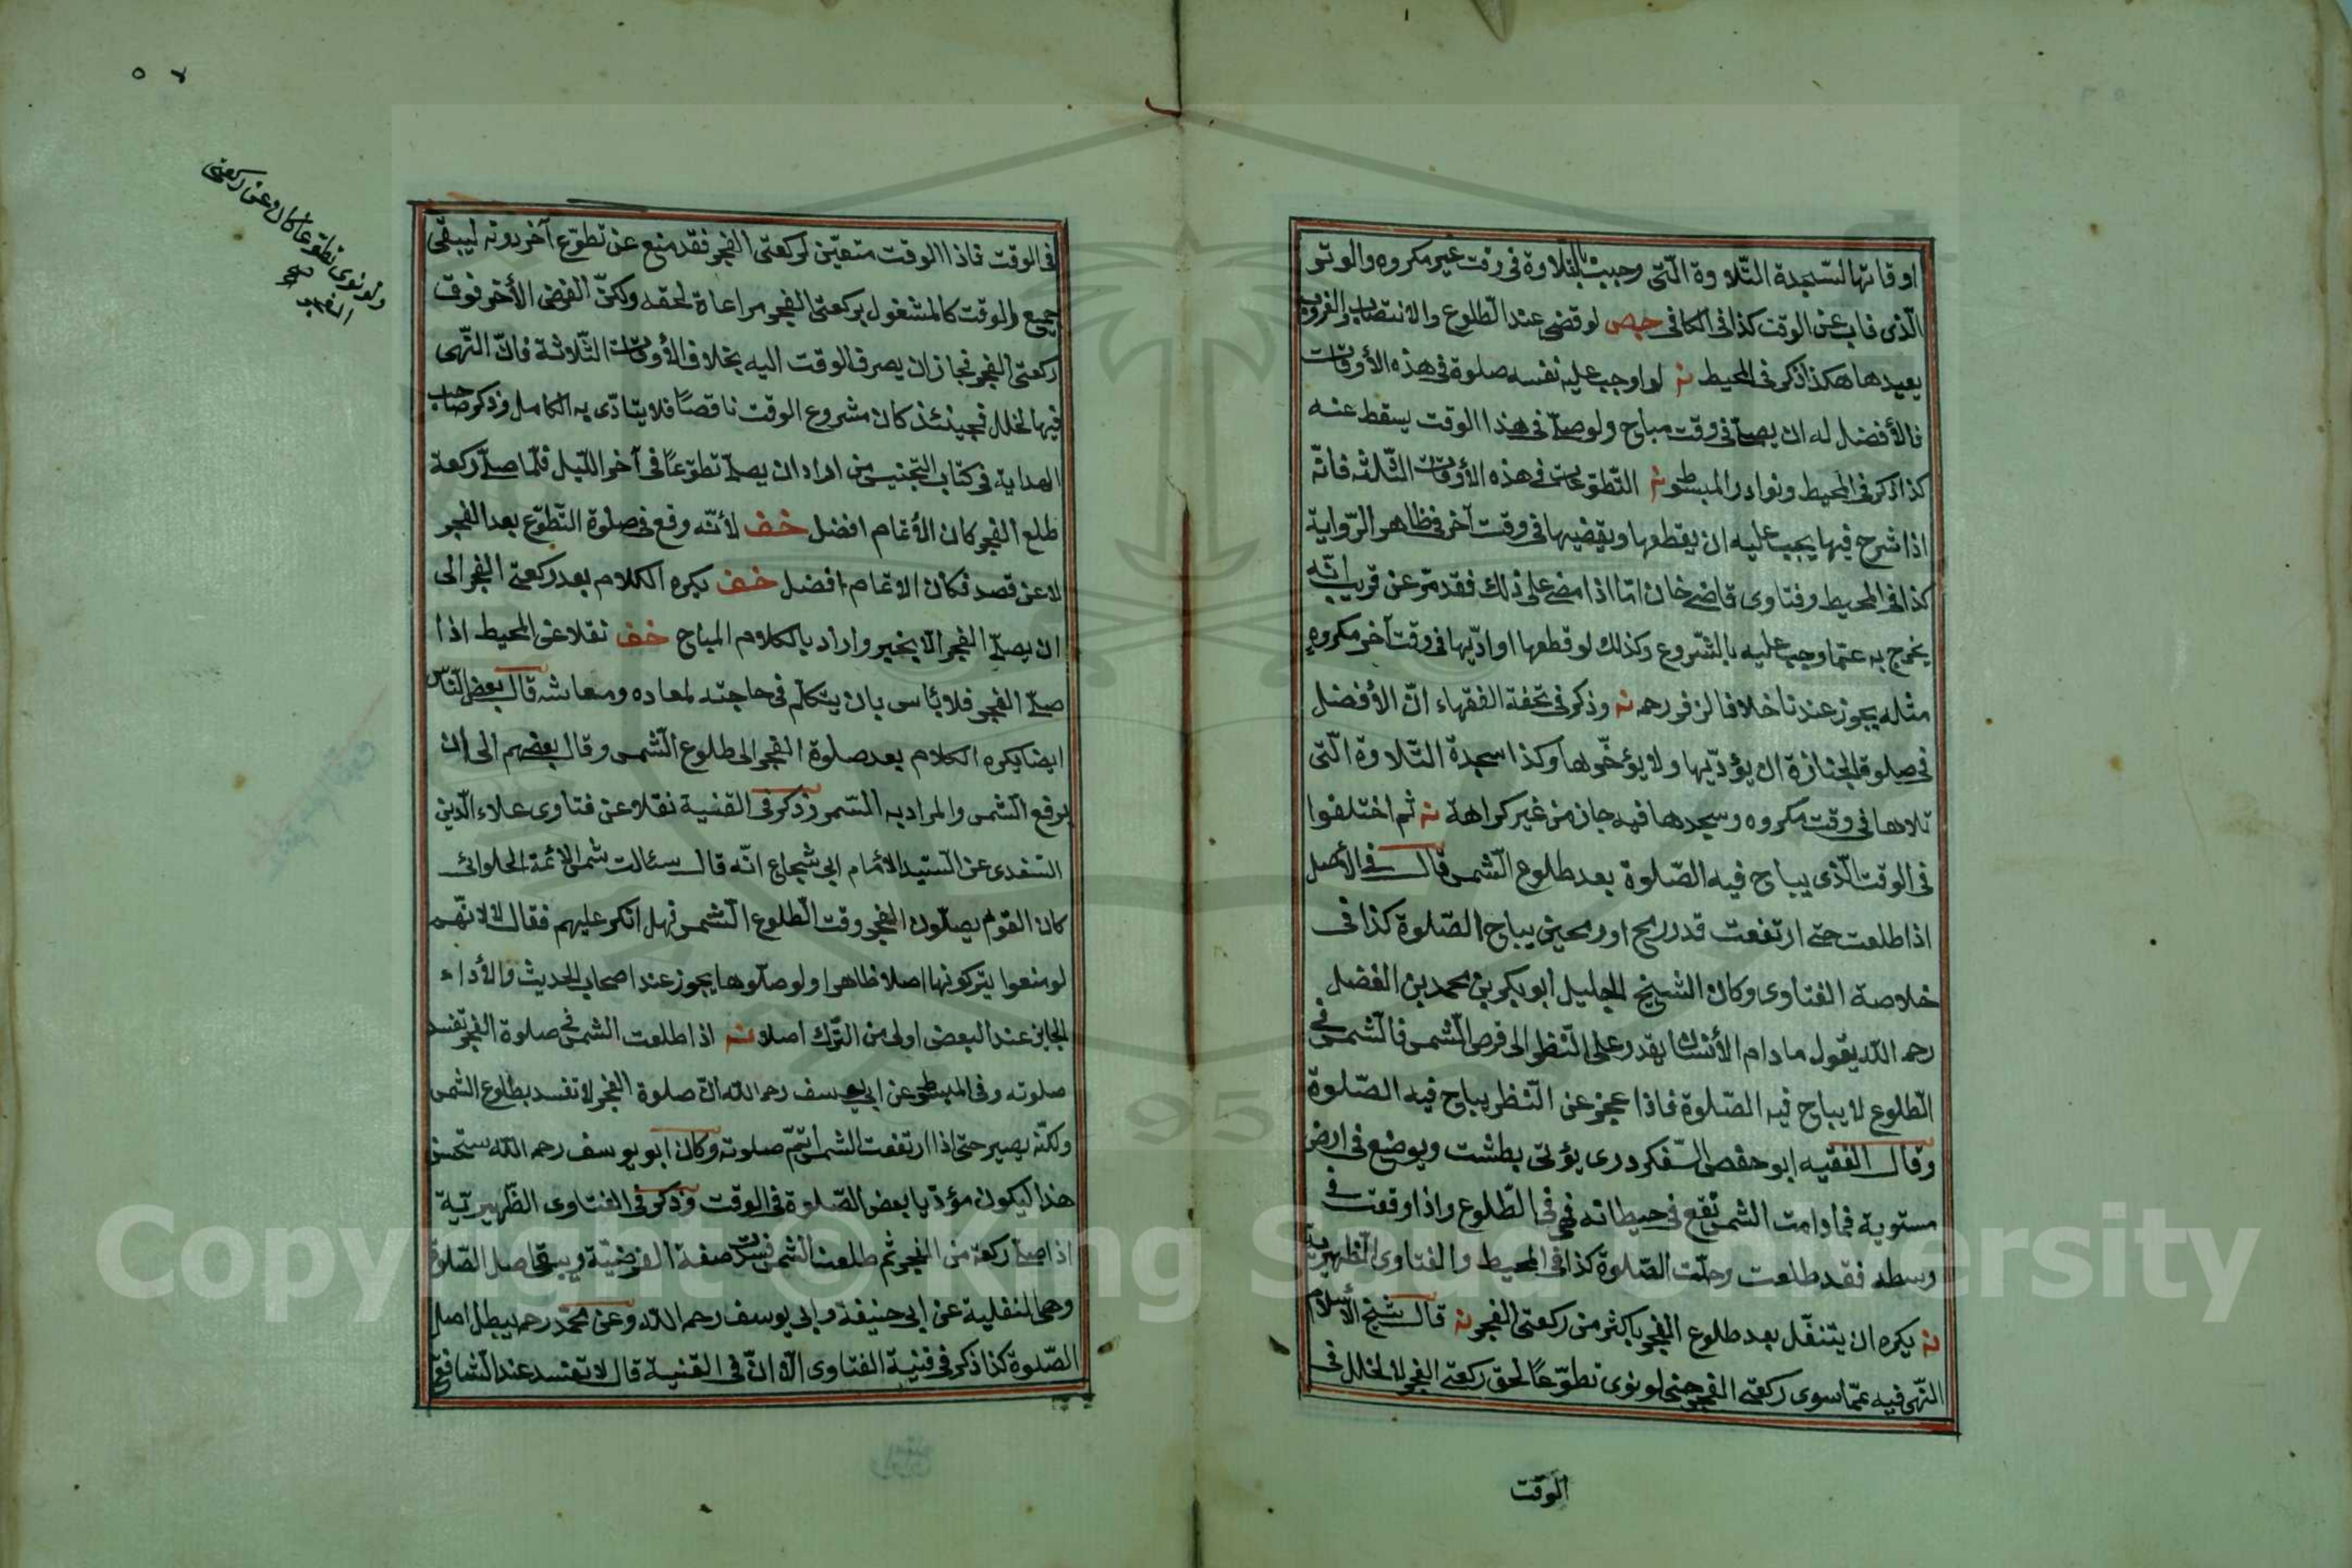 اوقاتها لسّجدة التّلاوة الّتى وجبت بالتّلاوة فى وقت غير مكروه والوتر
الّذى فات عن الوقت كذا فى الكافى لو قضى عند الطّلوع والانتصاب والغروب
يعيدها هكذا ذكر فى المحيط نه لو اوجب عليه نفسه صلوة فى هذه الأوقات
فالأفضل له ان يصلّى فى وقت مباح ولو صلّى فى هذا الوقت يسقط عنه
كذا ذكر فى المحيط ونوادر المبسوط نه التّطوّعات فى هذه الأوقات الثّلثه فانّه
اذا شرح فيها يجب عليه ان يقطعها ويقضيها فى وقت آخر فى ظاهر الرّواية
كذا فى المحيط وفتاوى قاضى خان امّا اذا مضى على ذلك فقد مرّ عن قريب انّه
يخرج به عمّا وجب عليه بالشّروع وكذلك لو قطعها او ادّيها فى وقت آخر مكروه
مثله يجوز عندنا خلافا لزفر رحمه نه وذكر فى تحفة الفقهاء انّ الأفضل
فى صلوة الجنازة ان يؤدّيها ولا يؤخّرها وكذا سجدة التّلاوة الّتى
تلاها فى وقت مكروه وسجدها فيه جاز من غير كراهة نه ثم اختلفوا
فى الوقت الّذى يباح فيه الصّلوة بعد طلوع الشّمس قال فى الأصل
اذا طلعت حتى ارتفعت قدر رمح او رمحين يباح الصّلوة كذا فى
خلاصة الفتاوى وكان الشيخ الجليل ابو بكر بن محمد بن الفضل
رحمه اللّه يقول ما دام الأنسان يقدر على النّظر الى قرص الشّمس فالشّمس فى
الطّلوع لا يباح فيه الصّلوة فاذا عجز عن النّظر يباح فيه الصّلوة
وقال الفقيه ابو حفص السّفكردرى يؤتى بطشت ويوضع فى ارض
مستوية فما دامت الشمس تقع فى حيطانه فهى فى الطّلوع واذا وقعت فى
وسطه فقد طلعت وحلّت الصّلوة كذا فى المحيط والفتاوى الظهيريّة
نه يكره ان يتنفّل بعد طلوع الفجر باكثر من ركعتى الفجر نه قال شيخ الأسلام
النّهى فيه عمّا سوى ركعتى الفجر حتى لو نوى تطوّعًا لحق ركعتى الفجر لا لخلل فى
الوقت
فى الوقت فاذا الوقت متعيّن لركعتى الفجر فقد منع عن تطوّع آخر دونه ليبقى
جميع الوقت كالمشغول بركعتى الفجر مراعاة لحقه ولكنّ الفرض الأخر فوق
ركعتى الفجر فجاز ان يصرف الوقت اليه بخلاف الأوقات الثّلاثة فانّ النّهى
فيها لخلل فحينئذ كان مشروع الوقت ناقصًا فلا يتادّى به الكامل وذكر صاحب
الهداية فى كتاب التجنيس من اراد ان يصلّى تطوّعًا فى آخر اللّيل فلمّا صلّى ركعة
طلع الفجر كان الأتمام افضل خف لأنّه وقع فى صلوة التّطوّع بعد الفجر
لا عن قصد فكان الاتمام افضل خف يكره الكلام بعد ركعتى الفجر الى
ان يصلّى الفجر الّا بخير واراد بالكلام المباح خف نقلا عن المحيط اذا
صلّى الفجر فلا بأس بان يتكلّم فى حاجته لمعاده ومعاشه قال بعض النّاس
ايضا يكره الكلام بعد صلوة الفجر الى طلوع الشّمس وقال بعضهم الى ان
يرفع الشّمس والمراد به السّمر وذكر فى القنية نقلا عن فتاوى علاء الدّين
السّغدى عن السّيد الأمام ابى شجاع انّه قال سئالت شمس الائمة الحلوائى
كان القوم يصلّون الفجر وقت الطّلوع الشّمس فهل انكر عليهم فقال لا لانّهم
لو منعوا يتركونها اصلا ظاهرا ولو صلّوها يجوز عند اصحاب الحديث والأداء
الجايز عند البعض اولى من التّرك اصلا نه اذا طلعت الشمس فى صلوة الفجر تفسد
صلوته وفى المبسوط عن ابى يوسف رحمه اللّه انّ صلوة الفجر لا تفسد بطلوع الشّمس
ولكنّه يصير حتى اذا ارتفعت الشمس تمّ صلوته وكان ابو يوسف رحمه اللّه ستحسن
هذا ليكون مؤدّيا بعض الصّلوة فى الوقت وذكر فى الفتاوى الظّهيريّة
اذا صلّى ركعة من الفجر ثم طلعت الشمس فسدت صفة الفرضيّة ويبقى اصل الصّلوة
وهى النفلية عن ابى حنيفة وابى يوسف رحمه اللّه وعن محمّد رحمه يبطل اصل
الصّلوة كذا ذكر فى قنية الفتاوى الّا انّ فى القنية قال لا تفسد عند الشّافعى
ولو نوى تطوعا كان عن ركعتى
الفجر
Copyright © King Saud University